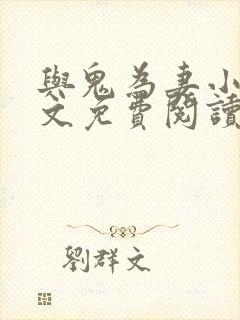 與鬼為妻小
文免費閱讀
劉群文